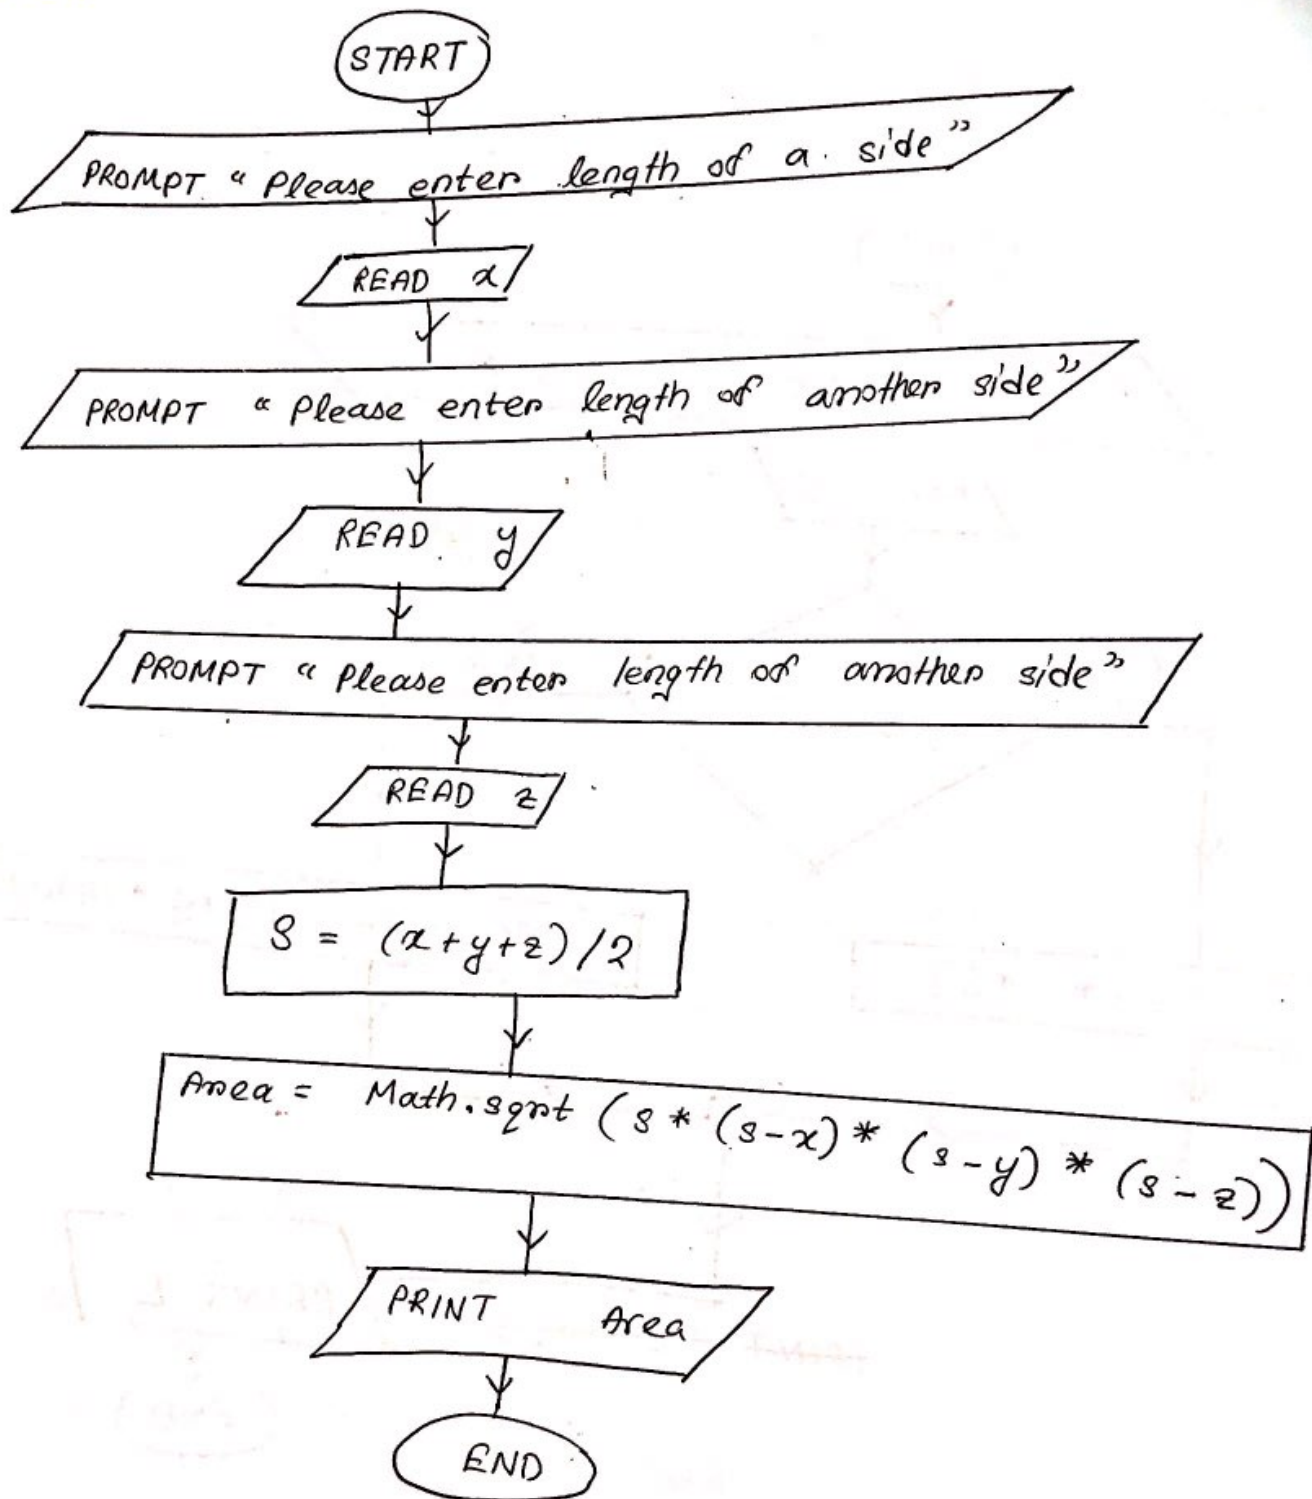 START
PROMPT "Please enter length of a side"
READ x
PROMPT "Please enter length of another side"
READ y
PROMPT "Please enter length of another side"
READ z
S = (x+y+z)/2
Area = Math.sqrt (s * (s-x) * (s-y) * (s-z))
PRINT Area
END